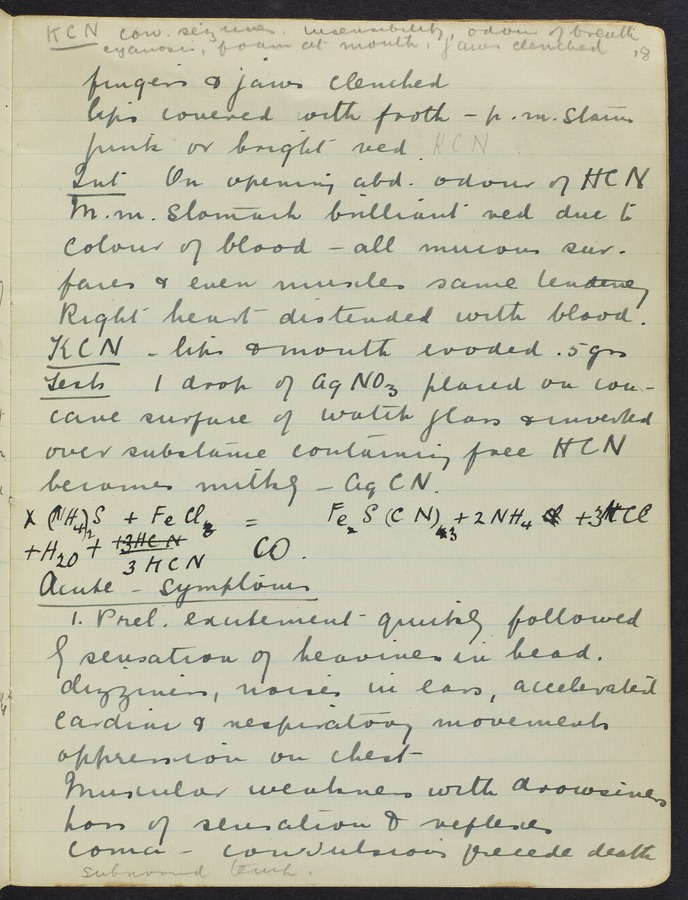 KCN con. seizures. insensibility, odour of breath
cyanosis, foam at mouth, jaws clenched 18
fingers & jaws clenched
lips covered with froth - p.m. stains
pink or bright red KCN
Int On opening abd. odour of HCN
M.m. stomach brilliant red due to
colour of blood - all mucous sur-
faces & even muscles same tendency
Right heart distended with blood.
KCN - lips & mouth eroded . 5 grs
Tests 1 drop of AgNO3 placed on con-
cave surface of watch glass & inverted
over substance containing free HCN
becomes milky - AgCN.
X (NH4)2S + FeCl3 = Fe2 S(CN)3 + 2NH4 Cl + 3HCl
+H2O + 3HCN 3HCN
Acute - symptoms
1. Prel. excitement quickly followed
by sensation of heaviness in head.
dizziness, noises in ears, accelerated
cardiac & respiratory movements
oppression on chest
Muscular weakness with drowsiness
loss of sensation & reflexes
coma - convulsions precede death
subnormal temp.
CO.